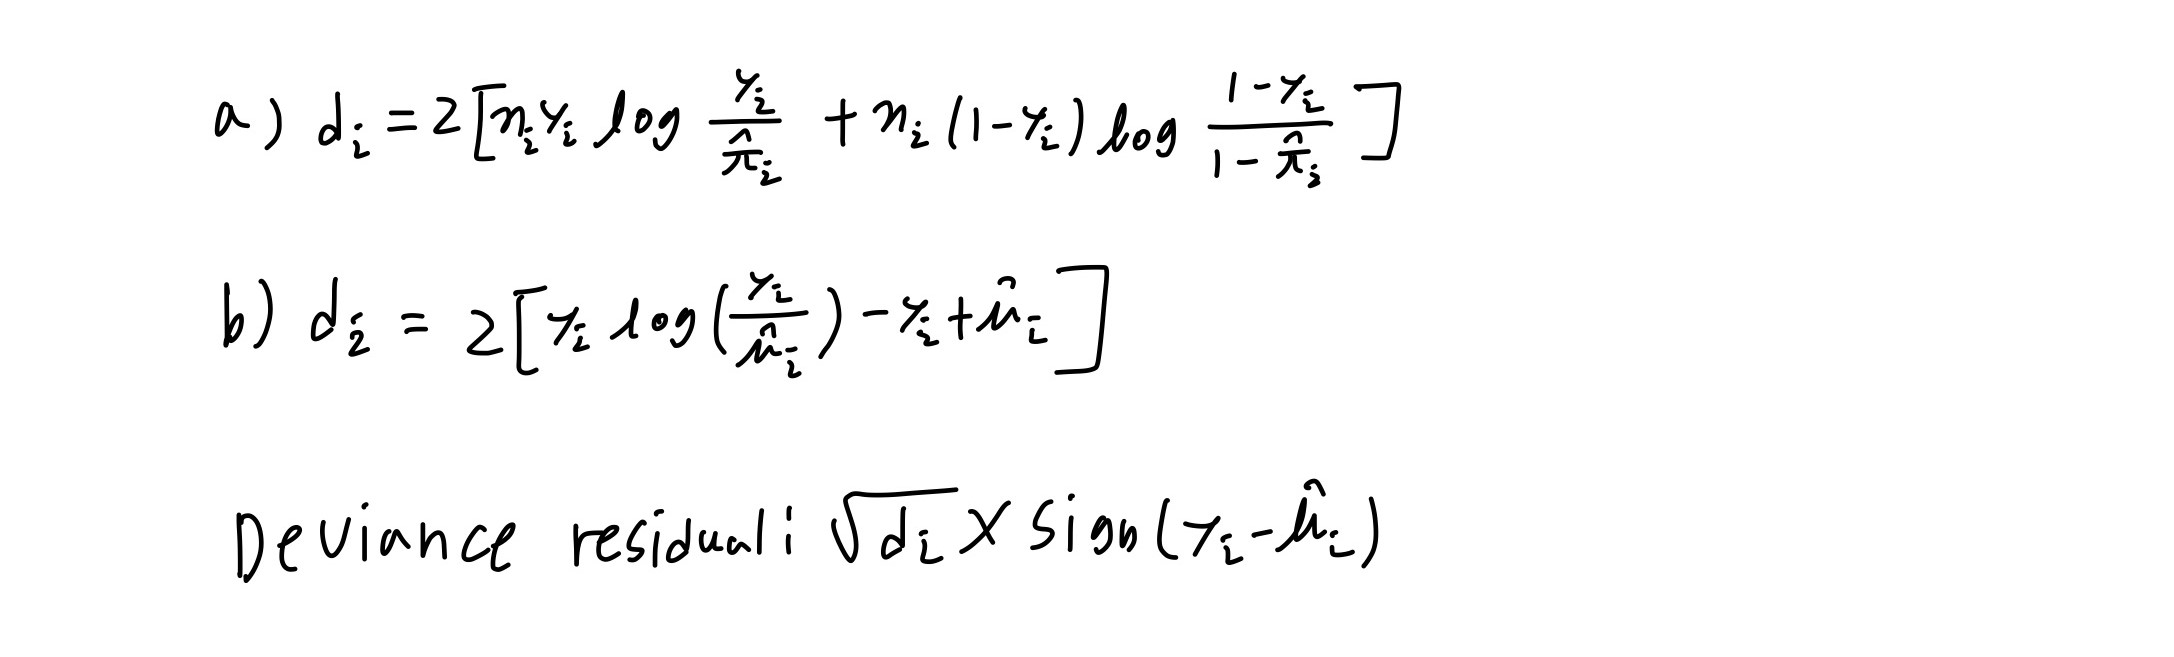 a) dᵢ = 2[nᵢyᵢ log yᵢ/π̂ᵢ + nᵢ(1-yᵢ) log (1-yᵢ)/(1-π̂ᵢ)]
b) dᵢ = 2[yᵢ log(yᵢ/μ̂ᵢ) - yᵢ + μ̂ᵢ]
Deviance residual: √dᵢ × sign(yᵢ - μ̂ᵢ)